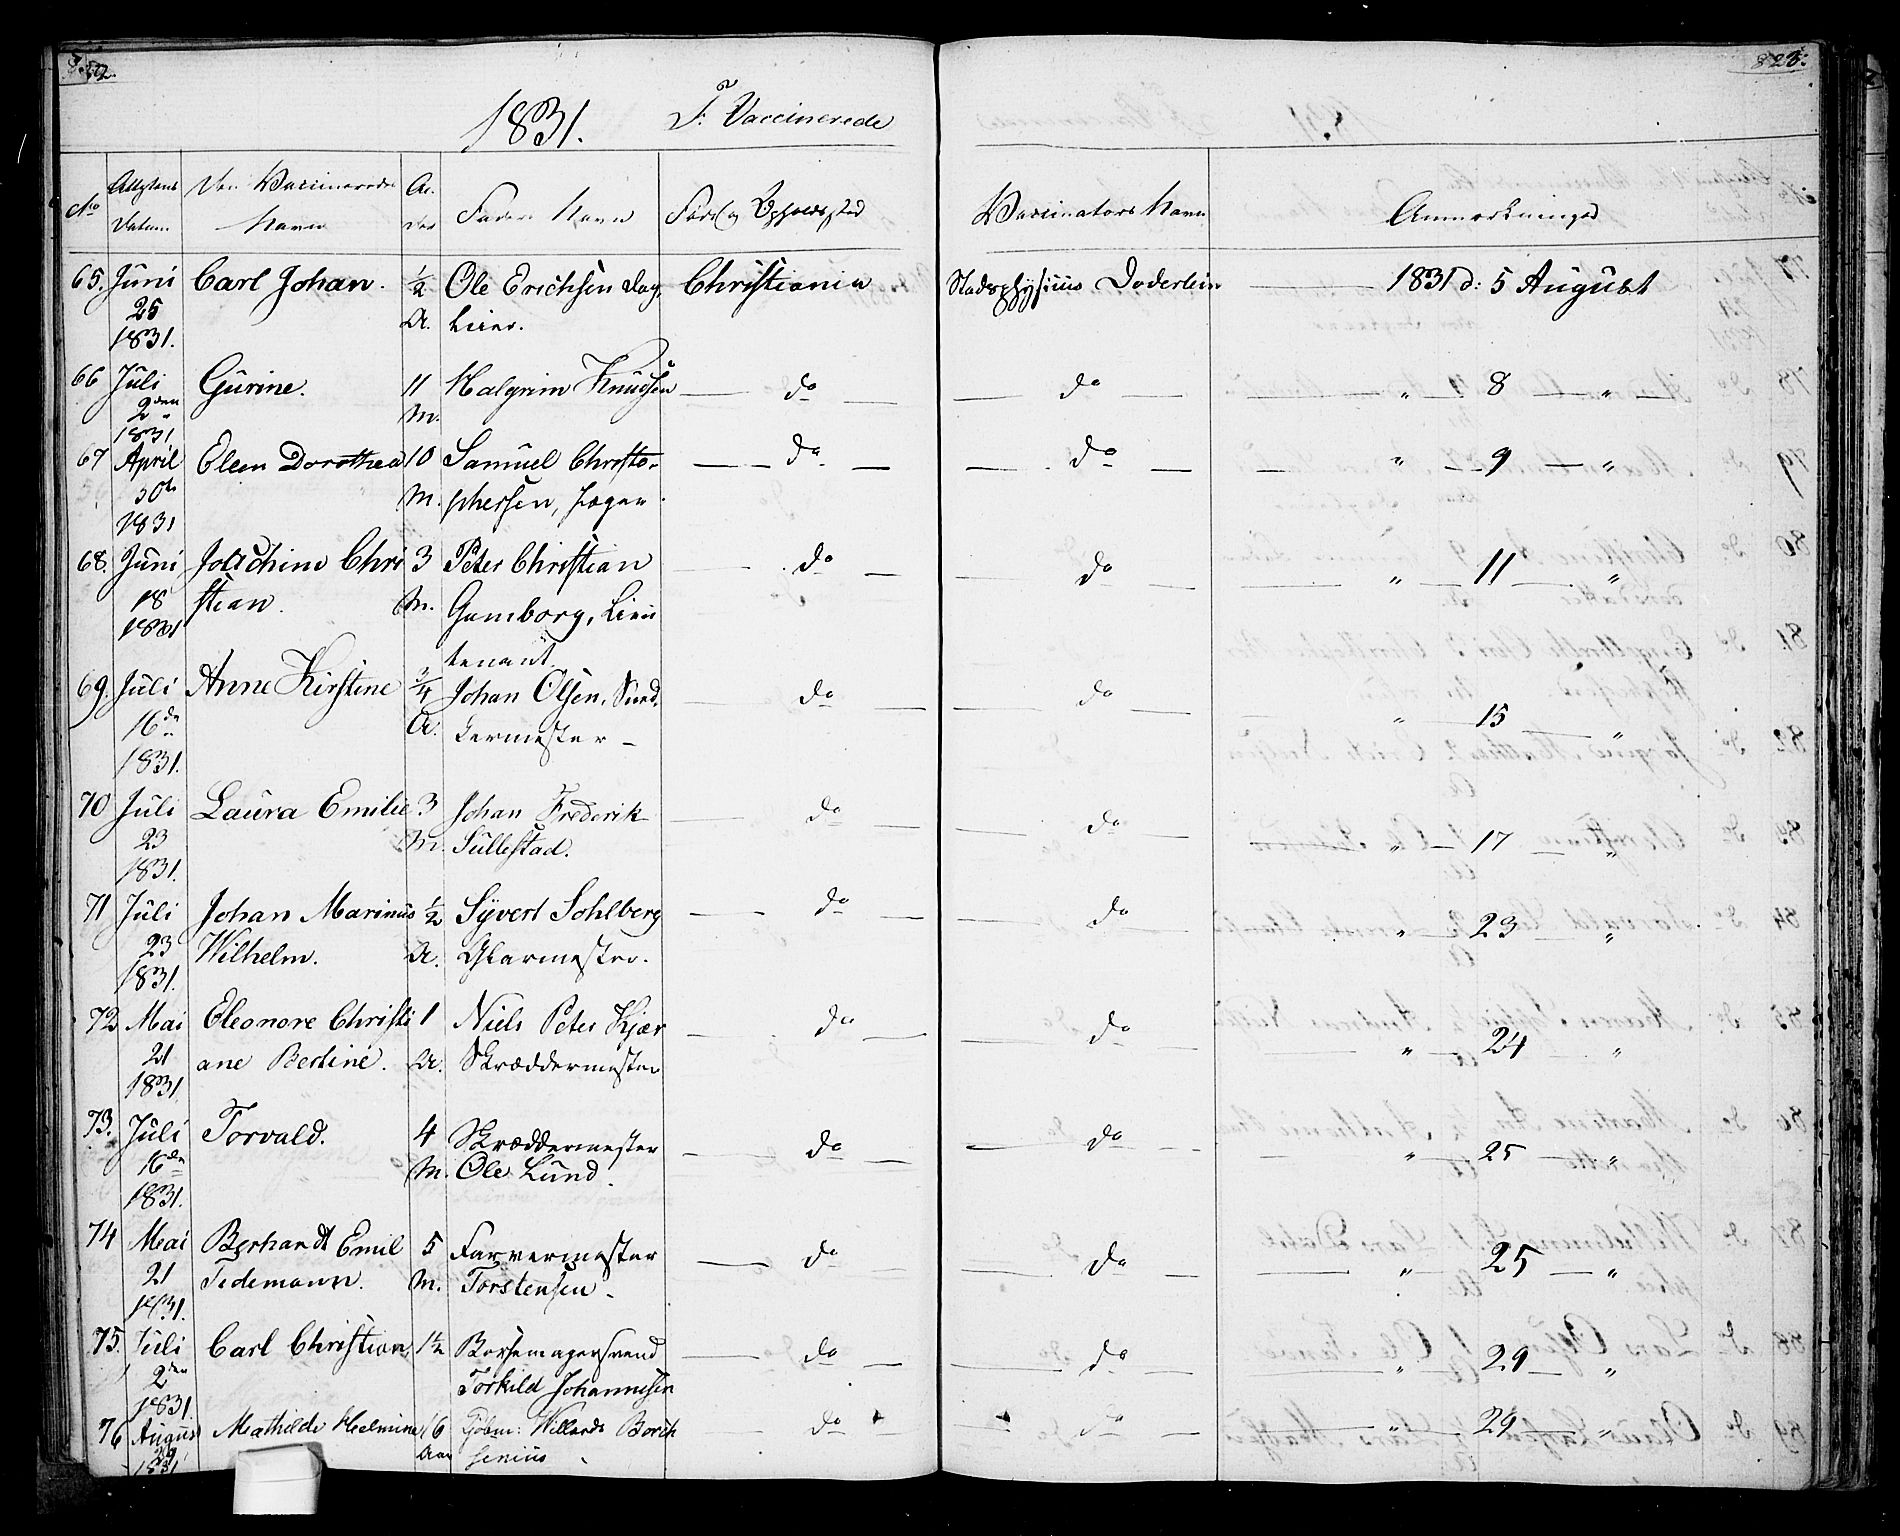 823.
1831. F: Vaccinerede
No Attestens Datum Den Vaccineredes Navn Al- der Faders Navn Føde og Opholdssted Vaccinators Navn Anmærkninger
65. Juni Carl Johan. ½ Ole Erichsen Dag, Christiania Stadsphysicus Doderlein 1831 d: 5 August
25 A. leier.
1831.
66 Juli Gurine. 11 Halgrim Knudsen do do " 8 "
2den M.
1831
67 April Elen Dorothea 10 Samuel Christo- do do " 9 "
30te M. phersen,
1831
68. Juni Joachim Chri 3 Peter Christian do do " 11 "
18 stian. M. Gamborg, Lieu
1831 tenant.
69. Juli Anne Kirstine ¾ Johan Olsen, Sned, do do " 15 "
16de A. kermester
1831.
70 Juli Laura Emilie 3 Johan Frederik do do " 17 "
23 M. Sullestad.
1831.
71 Juli Johan Marinus ½ Syvert Sohlberg do do " 23 "
23 Wilhelm. A. Glarmester.
1831.
72 Mai Eleonore Christi 1 Niels Peter Kjær do do " 24 "
21 ane Bertine. A. Skræddermester
1831.
73. Juli Torvald. 4 Skræddermester do do " 25 "
16de M. Ole Lund.
1831.
74 Mai Berhandt Emil 5 Farvermester do do " 25 "
21 Tidemann. M. Torstensen
1831.
75. Juli Carl Christian, 1½ Børsemagersvend do do " 29 "
2den Torkild Johannesen
1831.
76 August Mathilde Helmine 16 Willards Borch do do " 29 "
29 Aar senius
1831